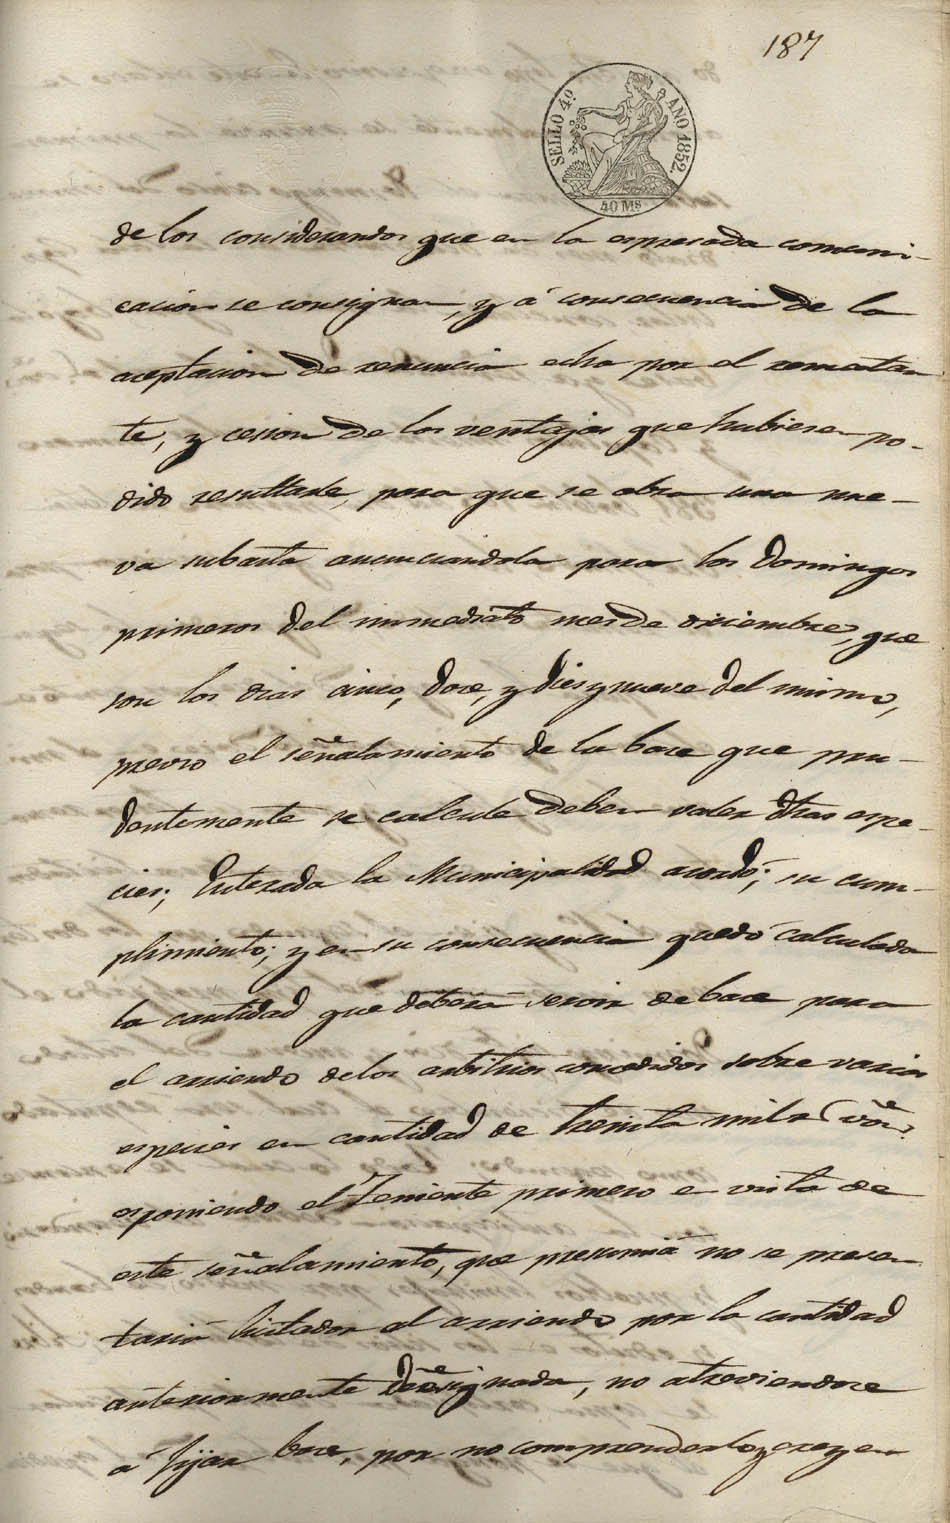 187
SELLO 4º AÑO 1852.
40 Ms
de los considerandos que en la espresada comuni-
cacion se consignan, y á consecuencia de la
aceptacion de renuncia echa por el rematan
te, y cesion de los ventajas que hubiesen po-
dido resultarle, para que se abra una nue-
va subasta anunciandola para los Domingos
primeros del inmediato mes de diciembre, que
son los dias cinco, doce, y dies y nueve del mismo,
previo el señalamiento de la base que pru-
dentemente se calcule deben valer dhas espe-
cies; Enterada la Municipalidad acordó; su cum-
plimiento; y en su consecuencia quedó calculada
la cantidad que deberá servir de base para
el arriendo de los arbitrios concedidos sobre varias
especies en cantidad de treinta mil r von.
esponiendo el Teniente primero en vista de
este señalamiento, que presumia no se presen
taria licitador al arriendo por la cantidad
anteriormente designada, no atreviendose
á fijar base, por no comprenderlo y creyen